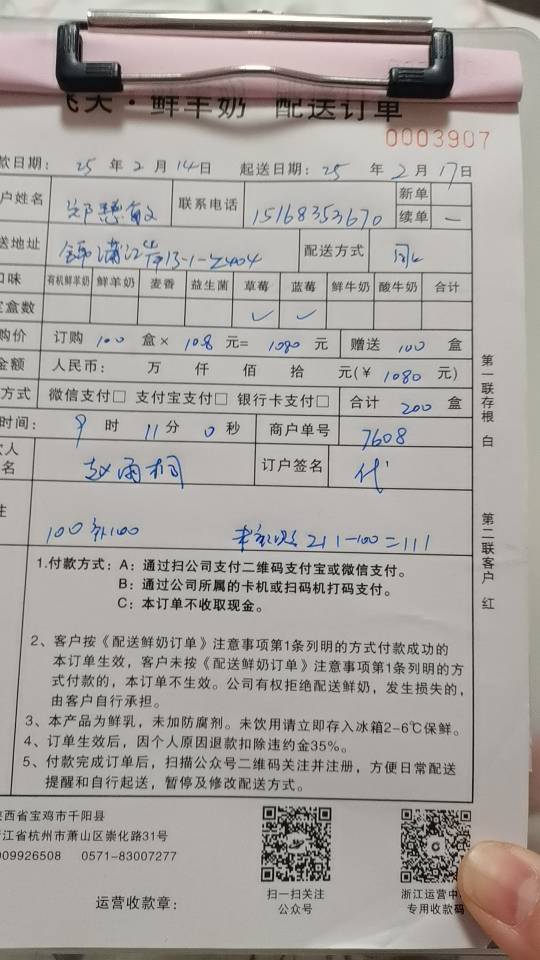 飞天·鲜羊奶 配送订单
0003907
款日期： 25 年 2 月 14 日 起送日期： 25 年 2 月 17 日
户姓名 联系电话 15168353670 新单
续单 一
送地址 13-1-2404 配送方式
口味 有机鲜羊奶 鲜羊奶 麦香 益生菌 草莓 蓝莓 鲜牛奶 酸牛奶 合计
定盒数 ✓ ✓
购价 订购 100 盒× 10.8 元= 1080 元 赠送 100 盒
金额 人民币： 万 仟 佰 拾 元(￥ 1080 元)
方式 微信支付□ 支付宝支付□ 银行卡支付□ 合计 200 盒
时间： 9 时 11 分 0 秒 商户单号 7608
款人
名 赵雨桐 订户签名 代
注
100 100 211-100=111
1.付款方式：A：通过扫公司支付二维码支付宝或微信支付。
B：通过公司所属的卡机或扫码机打码支付。
C：本订单不收取现金。
2、客户按《配送鲜奶订单》注意事项第1条列明的方式付款成功的
本订单生效，客户未按《配送鲜奶订单》注意事项第1条列明的方
式付款的，本订单不生效。公司有权拒绝配送鲜奶，发生损失的，
由客户自行承担。
3、本产品为鲜乳，未加防腐剂。未饮用请立即存入冰箱2-6℃保鲜。
4、订单生效后，因个人原因退款扣除违约金35%。
5、付款完成订单后，扫描公众号二维码关注并注册，方便日常配送
提醒和自行起送，暂停及修改配送方式。
陕西省宝鸡市千阳县
浙江省杭州市萧山区崇化路31号
009926508 0571-83007277
运营收款章：
扫一扫关注
公众号
浙江运营中
专用收款码
第一联存根 白
第二联客户 红